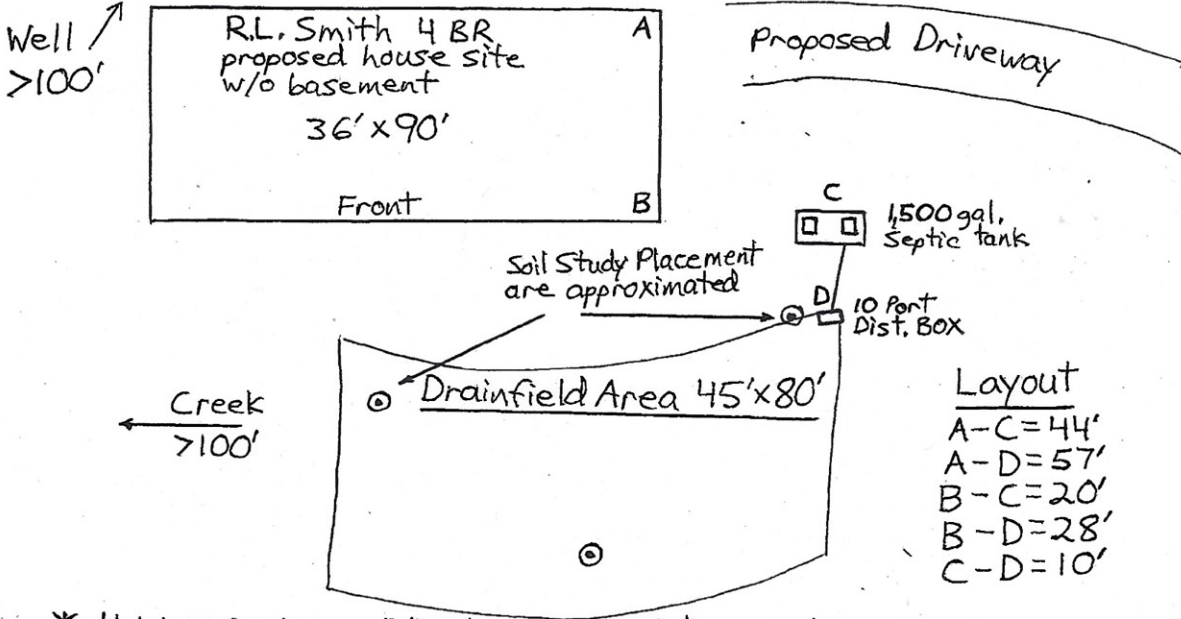 Well
>100'
R.L. Smith 4 BR
proposed house site
w/o basement
36' x 90'
Front
A
B
Proposed Driveway
C
1,500 gal.
Septic tank
Soil Study Placement
are approximated
D
10 Port
Dist. BOX
Drainfield Area 45' x 80'
Creek
>100'
Layout
A-C = 44'
A-D = 57'
B-C = 20'
B-D = 28'
C-D = 10'